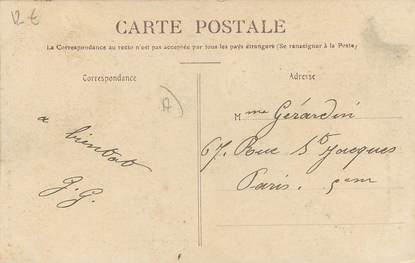 12 €
CARTE POSTALE
La Correspondance au recto n'est pas acceptée par tous les pays étrangers (Se renseigner à la Poste)
Correspondance
a bientot
J. G.
Adresse
A
Mme Gérardin
67. Rue St Jacques
Paris. 5em